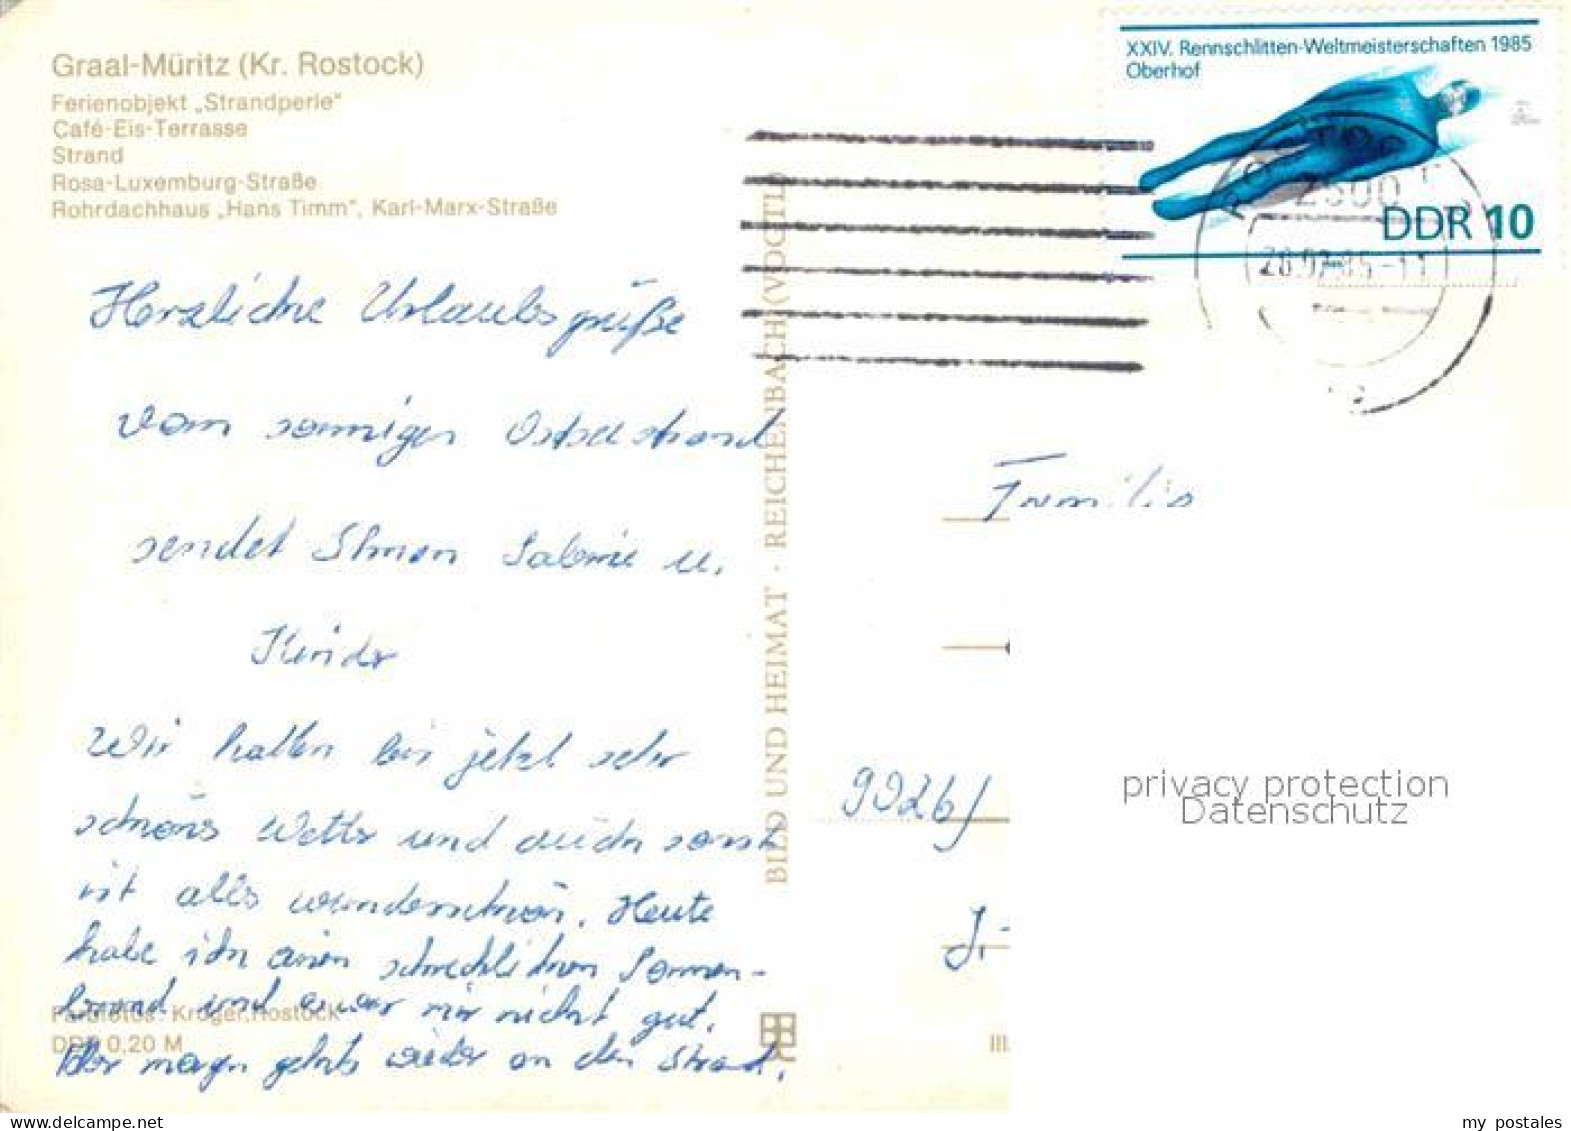 Graal-Müritz (Kr. Rostock)
Ferienobjekt „Strandperle"
Café-Eis-Terrasse
Strand
Rosa-Luxemburg-Straße
Rohrdachhaus „Hans Timm", Karl-Marx-Straße
Herzliche Urlaubsgrüße
vom sonnigen Ostseestrand
sendet Ihnen Sabine u.
Kinder
Wir hatten bis jetzt sehr
schönes Wetter und auch sonst
ist alles wunderschön. Heute
habe ich einen schrecklichen Sonnen-
brand und mir nicht gut.
Aber morgen gehts wieder an den Strand.
Farbfotos: Kröger, Rostock
DDR 0,20 M
BILD UND HEIMAT · REICHENBACH (VOGTL)
XXIV. Rennschlitten-Weltmeisterschaften 1985
Oberhof
DDR 10
2500
Familie
9026
III
privacy protection
Datenschutz
www.delcampe.net
my_postales